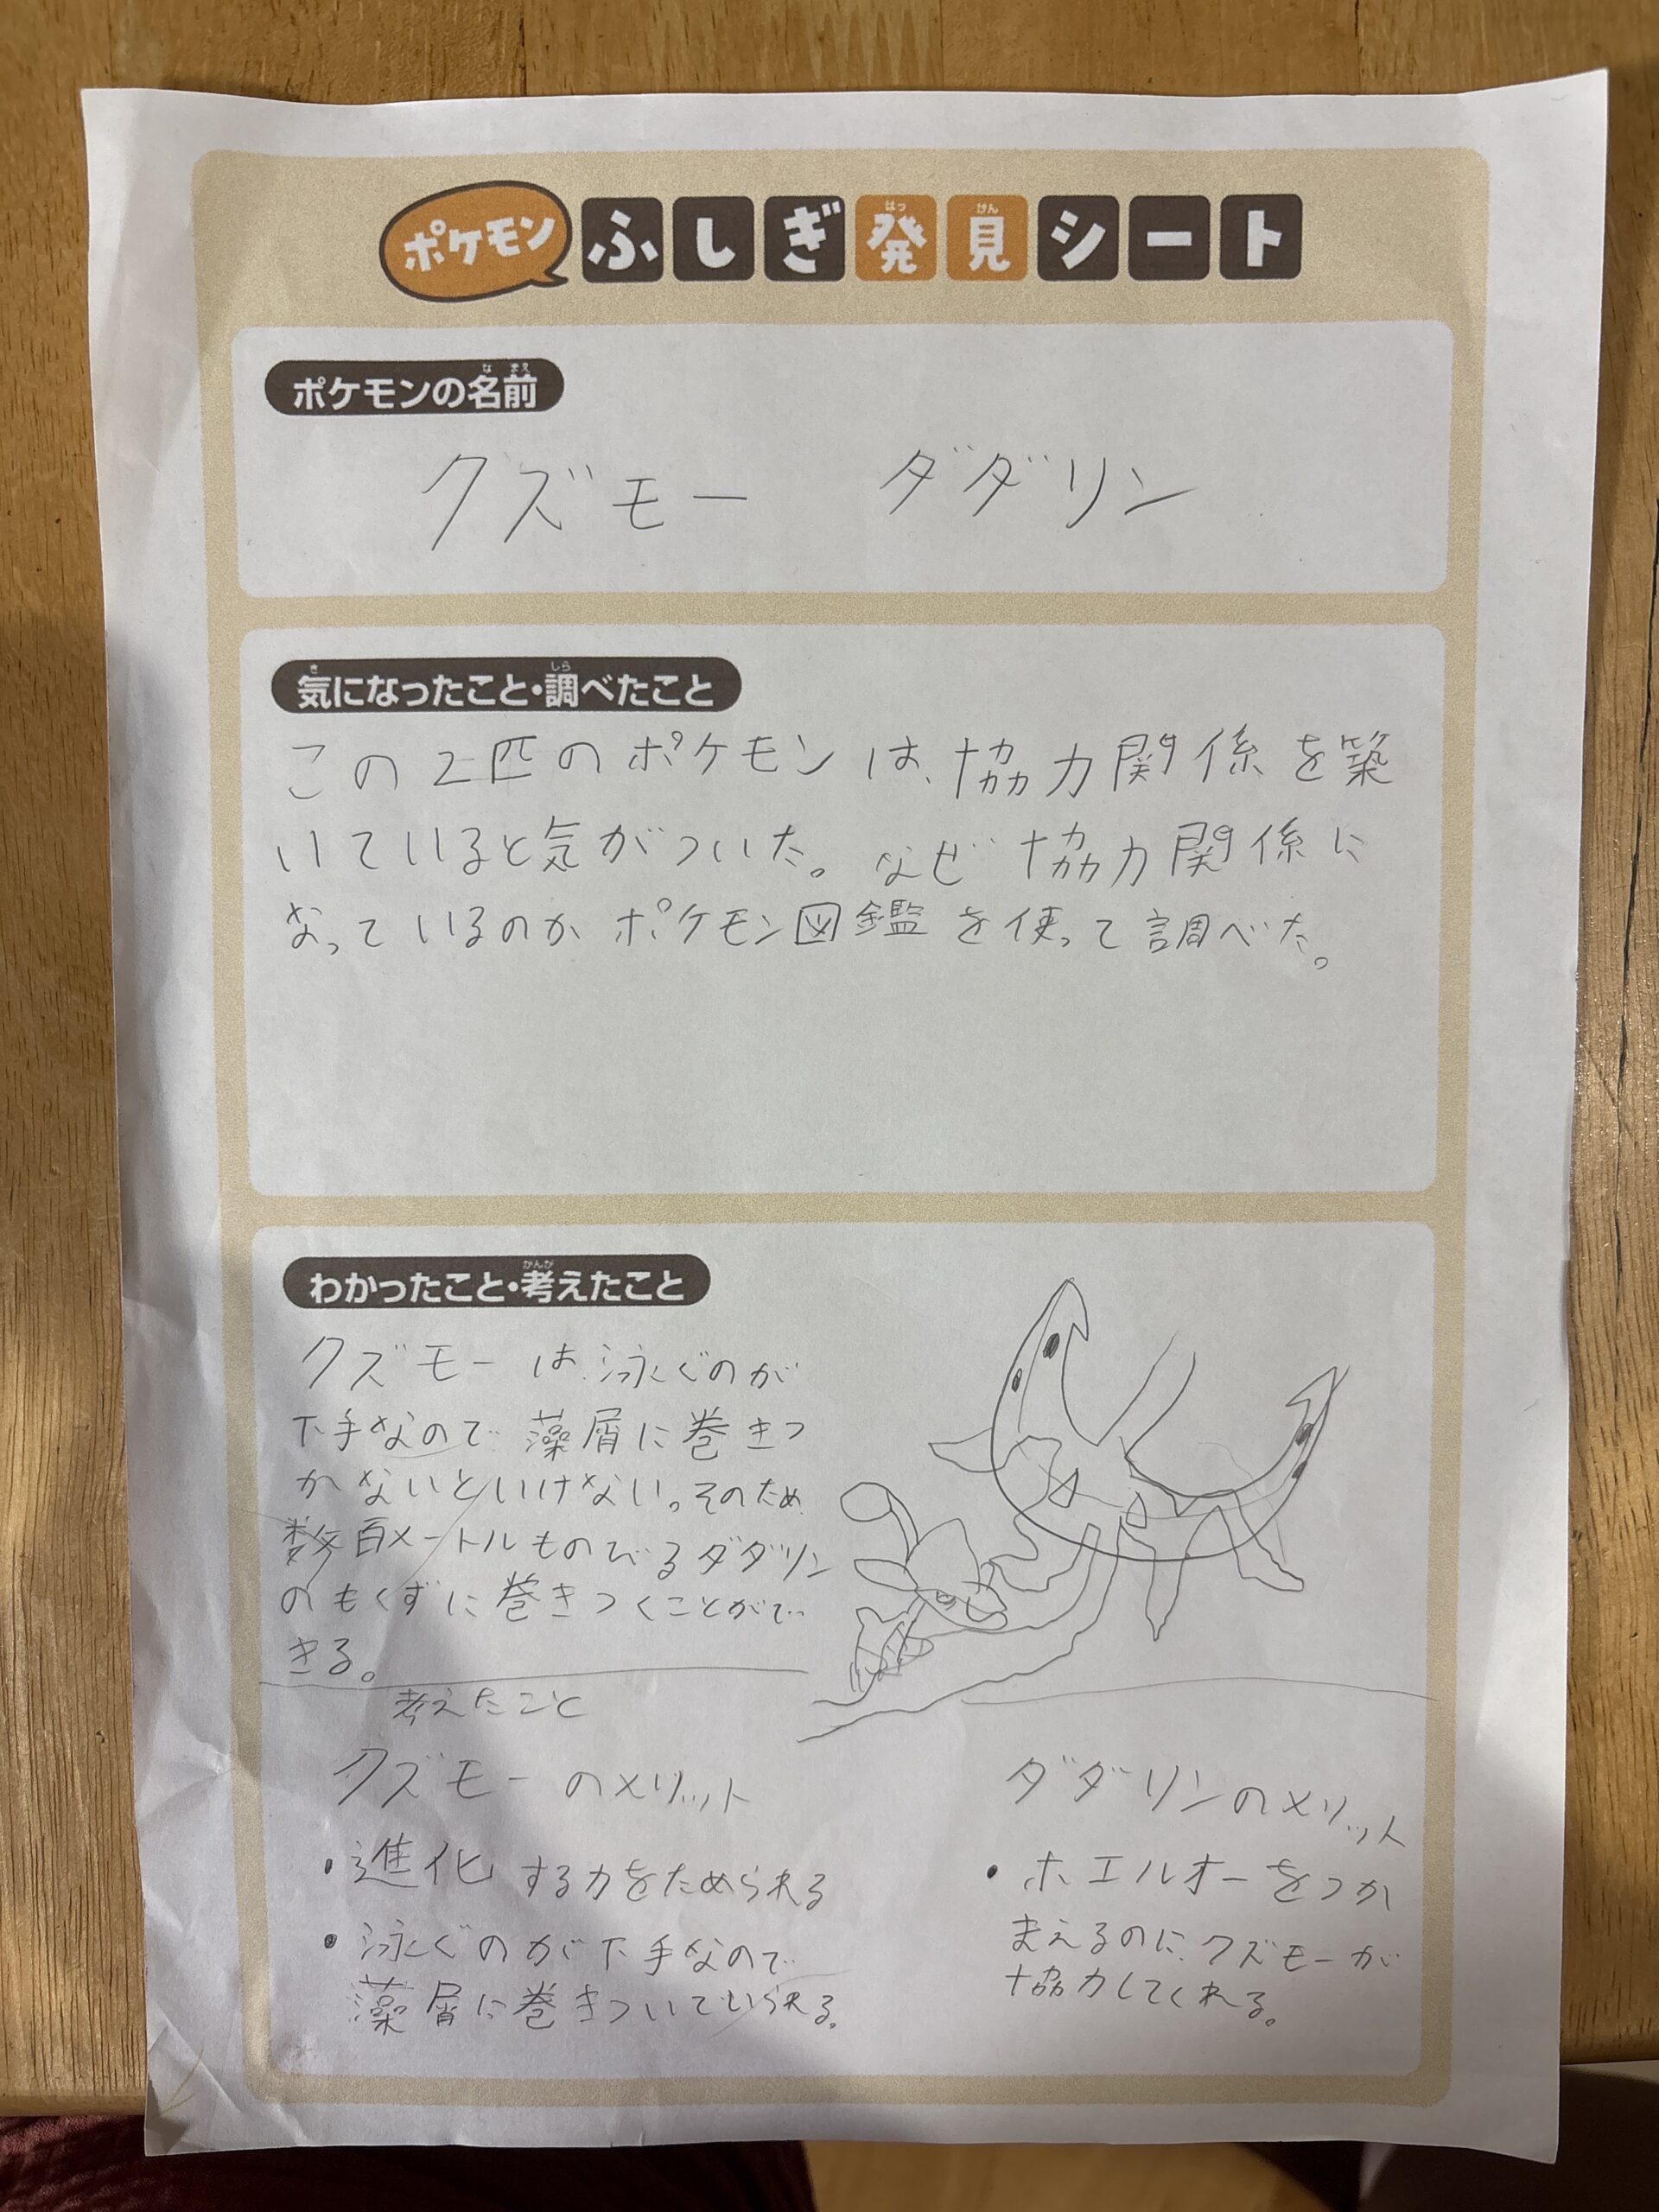 ポケモンふしぎ発見シート
ポケモンの名前
クズモー ダダリン
気になったこと・調べたこと
この2匹のポケモンは、協力関係を築
いていると気がついた。なぜ協力関係に
なっているのかポケモン図鑑を使って調べた。
わかったこと・考えたこと
クズモーは、泳ぐのが
下手なので藻屑に巻きつ
かないといけない。そのため
数百メートルものびるダダリン
のもくずに巻きつくことがで
きる。
考えたこと
クズモーのメリット
・進化する力をためられる
・泳ぐのが下手なので
藻屑に巻きついていられる。
ダダリンのメリット
・ホエルオーをつか
まえるのに、クズモーが
協力してくれる。